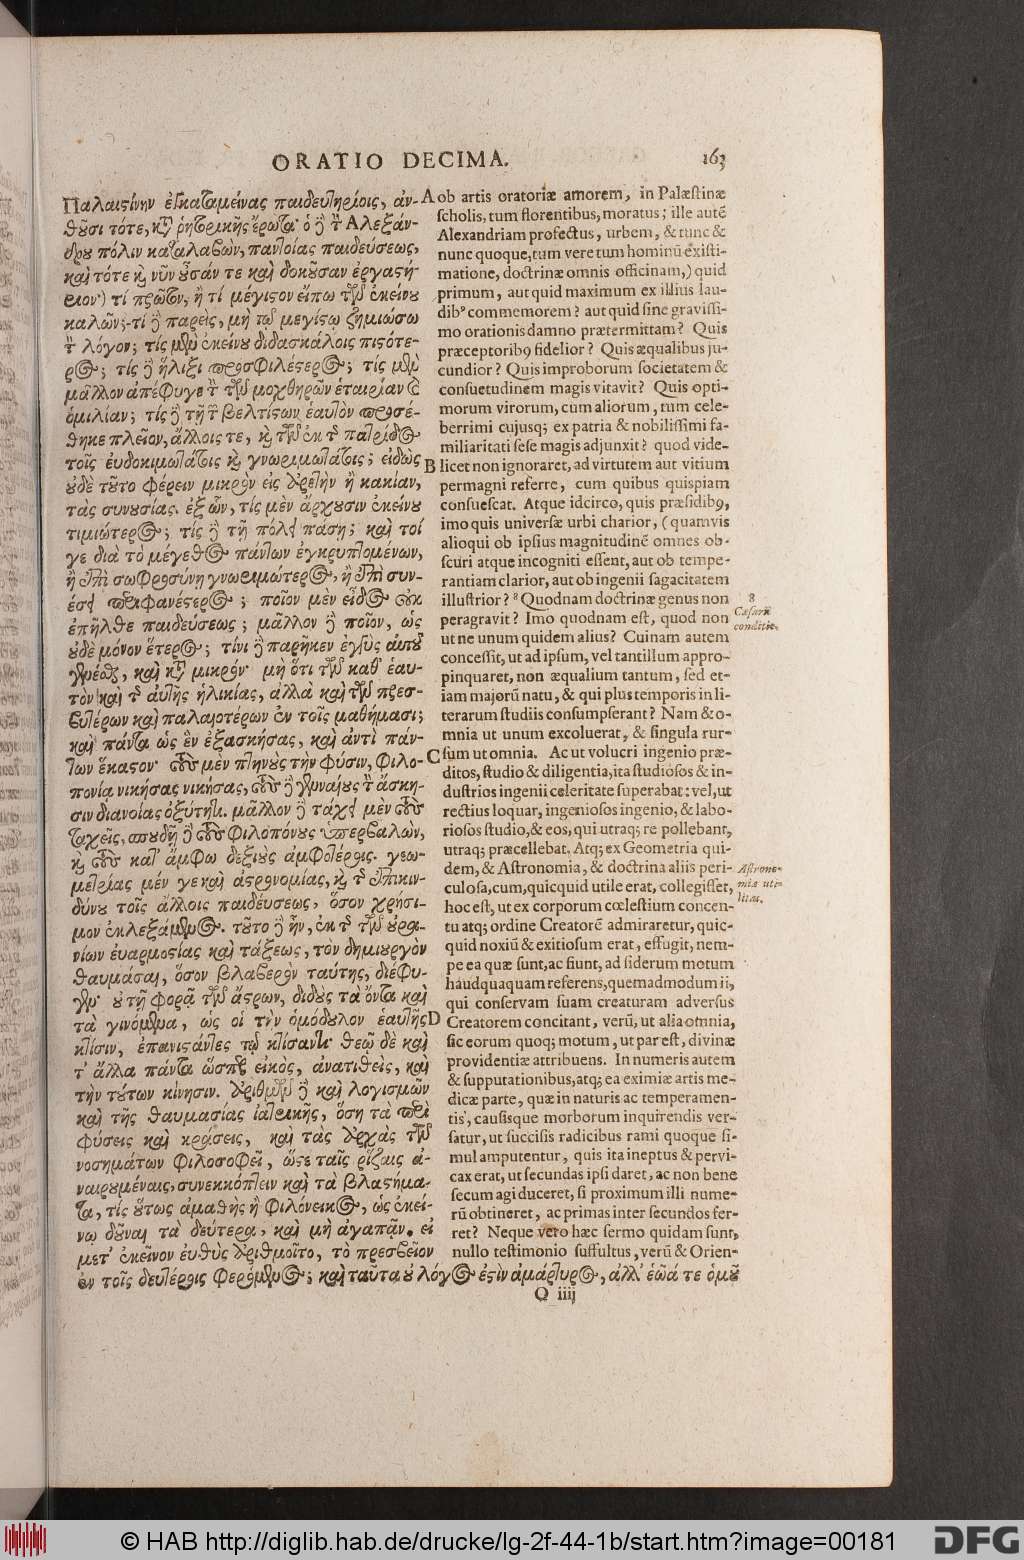 ORATIO DECIMA.
163
Παλαιστίνην ἐγκαταμείνας παιδευτηρίοις, ἀν-
θοῦσι τότε, κατὰ ῥητορικῆς ἔρωτα· ὁ δὲ τὴν Ἀλεξάν-
δρου πόλιν καταλαβὼν, παντοίας παιδεύσεως,
καὶ τότε καὶ νῦν οὖσάν τε καὶ δοκοῦσαν ἐργαστή-
ριον·) τί πρῶτον, ἢ τί μέγιστον εἴπω τῶν ἐκείνου
καλῶν; τί δὲ παρεὶς, μὴ τῷ μεγίστῳ ζημιώσω
τὸν λόγον; τίς μὲν ἐκείνου διδασκάλοις πιστότε-
ρος; τίς δὲ ἥλιξι προσφιλέστερος; τίς μὲν
μᾶλλον ἀπέφυγε τὴν τῶν μοχθηρῶν ἑταιρίαν καὶ
ὁμιλίαν; τίς δὲ τῇ τῶν βελτίστων ἑαυτὸν προσέ-
θηκε πλεῖον, ἄλλοις τε, καὶ τῶν ἐκ τῆς πατρίδος
τοῖς εὐδοκιμωτάτοις καὶ γνωριμωτάτοις; εἰδὼς
οὐδὲ τοῦτο φέρειν μικρὸν εἰς ἀρετὴν ἢ κακίαν,
τὰς συνουσίας. ἐξ ὧν, τίς μὲν ἄρχουσιν ἐκείνου
τιμιώτερος; τίς δὲ τῇ πόλει πάσῃ; καὶ τοί
γε διὰ τὸ μέγεθος πάντων ἐγκρυπτομένων,
ἢ ἐπὶ σωφροσύνῃ γνωριμώτερος, ἢ ἐπὶ συν-
έσει περιφανέστερος; ποῖον μὲν εἶδος οὐκ
ἐπῆλθε παιδεύσεως; μᾶλλον δὲ ποῖον, ὡς
οὐδὲ μόνον ἕτερος; τίνι δὲ παρῆκεν ἐγγὺς αὐτοῦ
γενέσθαι, καὶ κατὰ μικρόν· μὴ ὅτι τῶν καθ' ἑαυ-
τὸν καὶ τῆς αὐτῆς ἡλικίας, ἀλλὰ καὶ τῶν πρεσ-
βυτέρων καὶ παλαιοτέρων ἐν τοῖς μαθήμασι;
καὶ πάντα ὡς ἓν ἐξασκήσας, καὶ ἀντὶ πάν-
των ἕκαστον· τοὺς μὲν πτηνοὺς τὴν φύσιν, φιλο-
πονία νικήσας νικήσας, τοὺς δὲ γενναίους τὴν ἄσκη-
σιν διανοίας ὀξύτητι. μᾶλλον δὲ τάχει μὲν τοὺς
ταχεῖς, σπουδῇ δὲ τοὺς φιλοπόνους ὑπερβαλὼν,
καὶ τοὺς κατ' ἄμφω δεξιοὺς ἀμφοτέροις. γεω-
μετρίας μέν γε καὶ ἀστρονομίας, καὶ τῆς ἐπικιν-
δύνου τοῖς ἄλλοις παιδεύσεως, ὅσον χρήσι-
μον ἐκλεξάμενος. τοῦτο δὲ ἦν, ἐκ τῆς τῶν οὐρα-
νίων εὐαρμοστίας καὶ τάξεως, τὸν δημιουργὸν
θαυμάσαι, ὅσον βλαβερὸν ταύτης, διέφυ-
γεν· οὐ τῇ φορᾷ τῶν ἄστρων, διδοὺς τὰ ὄντα καὶ
τὰ γινόμενα, ὡς οἱ τὴν ὁμόδουλον ἑαυτῆς
κτίσιν, ἐπανιστάντες τῷ κτίσαντι· θεῷ δὲ καὶ
τ' ἄλλα πάντα ὥσπερ εἰκὸς, ἀνατιθεὶς, καὶ
τὴν τούτων κίνησιν. ἀριθμῶν δὲ καὶ λογισμῶν
καὶ τῆς θαυμασίας ἰατρικῆς, ὅση τὰ περὶ
φύσεις καὶ κράσεις, καὶ τὰς ἀρχὰς τῶν
νοσημάτων φιλοσοφεῖ, ὥστε ταῖς ῥίζαις ἀ-
ναιρουμέναις, συνεκκόπτειν καὶ τὰ βλαστήμα-
τα, τίς οὕτως ἀμαθὴς ἢ φιλόνεικος, ὡς ἐκεί-
νῳ δοῦναι τὰ δεύτερα, καὶ μὴ ἀγαπᾷν. εἰ
μετ' ἐκεῖνον εὐθὺς ἀριθμοῖτο, τὸ πρεσβεῖον
ἐν τοῖς δευτέροις φερόμενος; καὶ ταῦτα οὐ λόγος ἐστὶν ἀμάρτυρος, ἀλλ' ἑῶά τε ὁμοῦ
A ob artis oratoriæ amorem, in Palæstinæ
scholis, tum florentibus, moratus; ille autē
Alexandriam profectus, urbem, & tunc &
nunc quoque, tum vere tum hominū existi-
matione, doctrinæ omnis officinam,) quid
primum, aut quid maximum ex illius lau-
dibꝰ commemorem? aut quid sine gravissi-
mo orationis damno prætermittam? Quis
præceptoribꝰ fidelior? Quis æqualibus ju-
cundior? Quis improborum societatem &
consuetudinem magis vitavit? Quis opti-
morum virorum, cum aliorum, tum cele-
berrimi cujusq; ex patria & nobilissimi fa-
miliaritati sese magis adjunxit? quod vide-
B licet non ignoraret, ad virtutem aut vitium
permagni referre, cum quibus quispiam
consuescat. Atque idcirco, quis præsidibꝰ,
imo quis universæ urbi charior, (quamvis
alioqui ob ipsius magnitudinē omnes ob-
scuri atque incogniti essent, aut ob tempe-
rantiam clarior, aut ob ingenii sagacitatem
illustrior? ⁸ Quodnam doctrinæ genus non
peragravit? Imo quodnam est, quod non
ut ne unum quidem alius? Cuinam autem
concessit, ut ad ipsum, vel tantillum appro-
pinquaret, non æqualium tantum, sed et-
iam majorū natu, & qui plus temporis in li-
terarum studiis consumpserant? Nam & o-
mnia ut unum excoluerat, & singula rur-
C sum ut omnia. Ac ut volucri ingenio præ-
ditos, studio & diligentia, ita studiosos & in-
dustrios ingenii celeritate superabat: vel, ut
rectius loquar, ingeniosos ingenio, & labo-
riosos studio, & eos, qui utraq; re pollebant,
utraq; præcellebat. Atq; ex Geometria qui-
dem, & Astronomia, & doctrina aliis peri-
culosa, cum, quicquid utile erat, collegisset,
hoc est, ut ex corporum cœlestium concen-
tu atq; ordine Creatorē admiraretur, quic-
quid noxiū & exitiosum erat, effugit, nem-
pe ea quæ sunt, ac fiunt, ad siderum motum
haudquaquam referens, quemadmodum ii,
qui conservam suam creaturam adversus
D Creatorem concitant, verū, ut alia omnia,
sic eorum quoq; motum, ut par est, divinæ
providentiæ attribuens. In numeris autem
& supputationibus, atq; ea eximiæ artis me-
dicæ parte, quæ in naturis ac temperamen-
tis, causisque morborum inquirendis ver-
satur, ut succisis radicibus rami quoque si-
mul amputentur, quis ita ineptus & pervi-
cax erat, ut secundas ipsi daret, ac non bene
secum agi duceret, si proximum illi nume-
rū obtineret, ac primas inter secundos fer-
ret? Neque vero hæc sermo quidam sunt,
nullo testimonio suffultus, verū & Orien-
8
Cæsarii
conditio.
Astrono-
miæ uti-
litas.
Q iiij
© HAB http://diglib.hab.de/drucke/lg-2f-44-1b/start.htm?image=00181
DFG